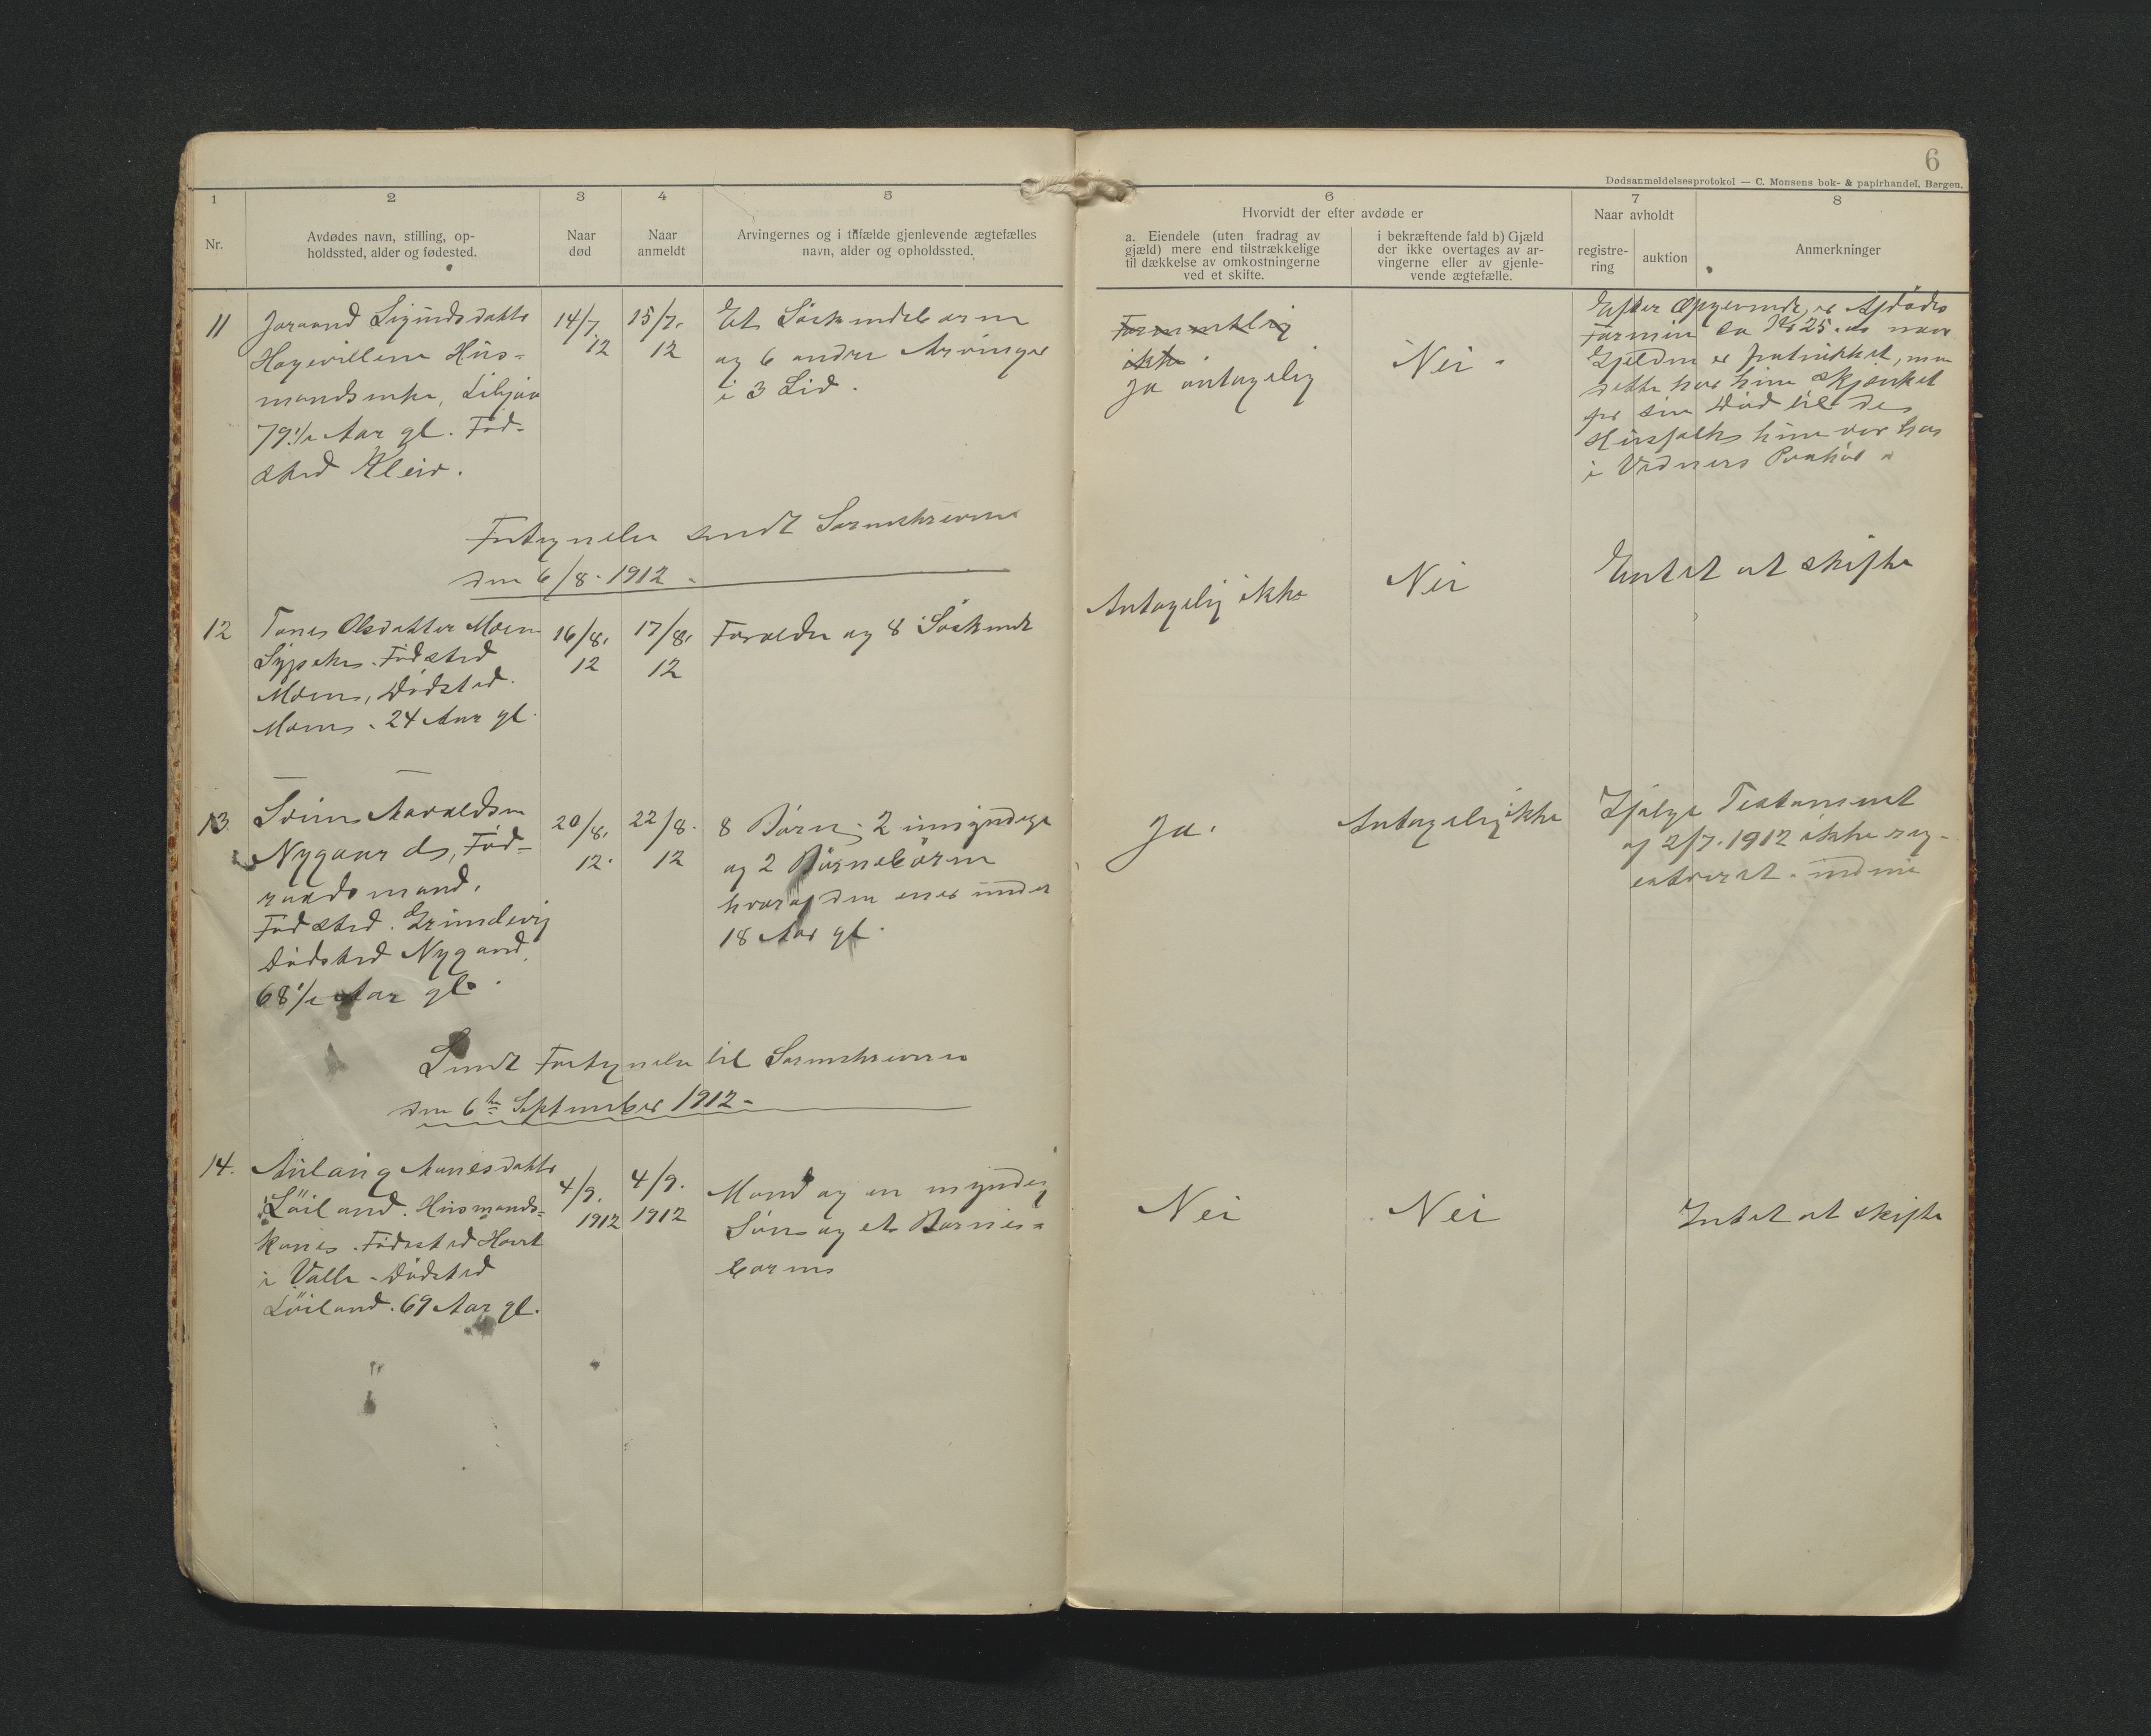 6
Dødsanmeldelsesprotokol — C. Monsens bok- & papirhandel, Bergen.
1 2 3 4 5 6 7 8
Nr.
Avdødes navn, stilling, op-
holdssted, alder og fødested.
Naar
død
Naar
anmeldt
Arvingernes og i tilfælde gjenlevende ægtefælles
navn, alder og opholdssted.
Hvorvidt der efter avdøde er
a. Eiendele (uten fradrag av
gjæld) mere end tilstrækkelige
til dækkelse av omkostningerne
ved et skifte.
i bekræftende fald b) Gjæld
der ikke overtages av ar-
vingerne eller av gjenle-
vende ægtefælle.
Naar avholdt
registre-
ring
auktion
Anmerkninger
11
Joraand Sigundsdatter
Hagevillene Hus-
mandsenke,
79½ Aar gl. Fød-
sted Kleiv.
14/7
12
15/7.
12
Et Søskendebarn
og 6 andre Arvinger
i 3 Lid.
Formentlig
ikke
Ja antagelig
Nei
Efter Opgivende, er Afdødes
Formue ca Kr 25. naar
Gjelden er fratrukket, men
dette har hun skjænket
før sin Død til de
Husfolk hun var hos
i Vidners Paahør
Fortegnelse sendt Sorenskriveren
den 6/8. 1912.
12
Tone Olsdatter Moen
Sypike. Fødsted
Moen, Dødsted
Moen. 24 Aar gl.
16/8.
12
17/8.
12
Forældre og 8 Søskende
Antagelig ikke
Nei
Intet at skifte
13
Svein Aavaldsen
Nygaard, Fød-
raadsmand.
Fødsted.
Dødsted Nygaard.
68½ Aar gl.
20/8.
12.
22/8.
12
8 Børn. 2 umyndige
og 2 Børnebørn
hvoraf den ene under
18 Aar gl.
Ja.
Antagelig ikke
Ifølge Testament
af 2/7. 1912 ikke reg-
istreret.
Sendt Fortegnelse til Sorenskriveren
den 6te September 1912.
14.
Aulaug Aanesdatter
Løiland. Husmands-
kone. Fødested
i Valle. Dødsted
Løiland. 69 Aar gl.
4/9.
1912
4/9.
1912
Mand og en myndig
Søn og et Barne-
barn
Nei
Nei
Intet at skifte